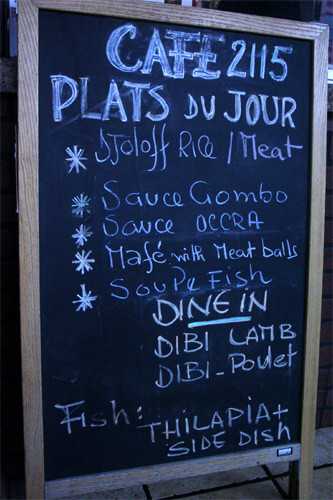 CAFE 2115
PLATS DU JOUR
* DJOLOFF RICE / MEAT
* Sauce Gombo
* Sauce OCCRA
* Mafé with Meat balls
* SOUPE FISH
DINE IN
DIBI LAMB
DIBI-POULET
Fish: THILAPIA+
SIDE DISH